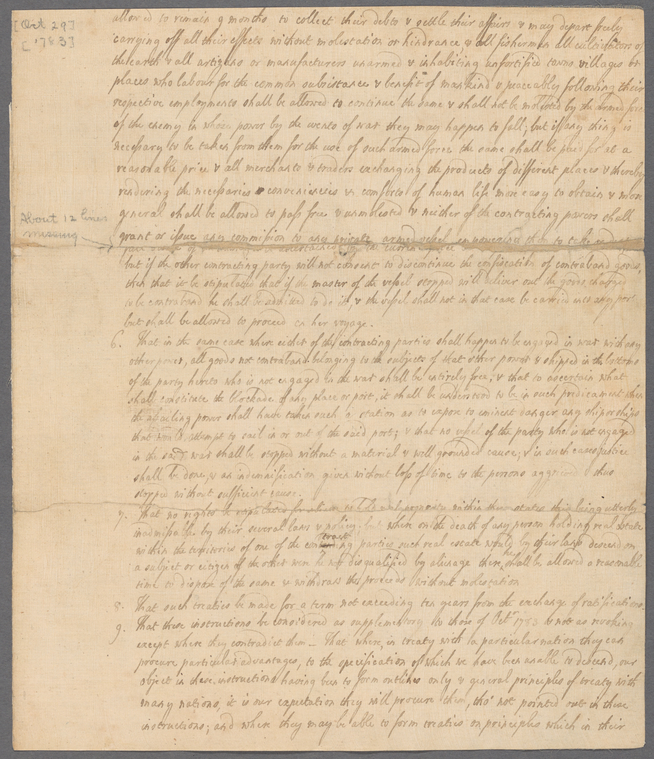 [Oct 29]
[1783]
allowed to remain 9 months to collect their debts & settle their affairs, & may depart freely
carrying off all their effects without molestation or hindrance & all fishermen all cultivators of
the earth & all artizans or manufacturers unarmed & inhabiting unfortified towns villages or
places who labour for the common subsistance & benefit of mankind & peaceably following their
respective employments shall be allowed to continue the same & shall not be molested by the armed force
of the enemy in whose power by the events of war they may happen to fall; but if any thing is
necessary to be taken from them for the use of such armed force the same shall be paid for at a
reasonable price & all merchants & traders exchanging the products of different places & thereby
rendering the necessaries conveniencies & comforts of human life more easy to obtain & more
general shall be allowed to pass free & unmolested & neither of the contracting powers shall
About 12 lines
missing
grant or issue any commission to any private armed vessel empowering them to take
but if the other contracting party will not consent to discontinue the confiscation of contraband goods,
then that it be stipulated that if the master of the vessel stopped will deliver out the goods charged
to be contraband he shall be admitted to do it, & the vessel shall not in that case be carried into any port
but shall be allowed to proceed on her voyage.
6. That in the same case where either of the contracting parties shall happen to be engaged in war with any
other power, all goods not contraband belonging to the subjects of that other power & shipped in the bottoms
of the party hereto who is not engaged in the war shall be entirely free; & that to ascertain what
shall constitute the blockade of any place or port, it shall be understood to be in such predicament when
the assailing power shall have taken such a station as to expose to iminent danger any ship or ships
that would attempt to sail in or out of the said port; & that no vessel of the party who is not engaged
in the said war shall be stopped without a material & well grounded cause; & in such cases justice
shall be done, & an indemnification given without loss of time to the persons aggrieved & thus
stopped without sufficient cause.
7. That no rights be stipulated for aliens to hold real property within these states this being utterly
inadmissible by their several laws & policy; but where on the death of any person holding real estate
within the territories of one of the contracting parties such real estate would by their laws descend on
a subject or citizen of the other were he not disqualified by alienage there, he shall be allowed a reasonable
time to dispose of the same & withdraw the proceeds without molestation
8. That such treaties be made for a term not exceeding ten years from the exchange of ratifications,
9. That these instructions be considered as supplementary to those of Octr 1783 & not as revoking
except where they contradict them. That where, in treaty with a particular nation they can
procure particular advantages, to the specification of which we have been unable to descend, our
object in these instructions having been to form outlines only & general principles of treaty with
many nations, it is our expectation they will procure them, tho' not pointed out in these
instructions; and where they may be able to form treaties on principles which in their